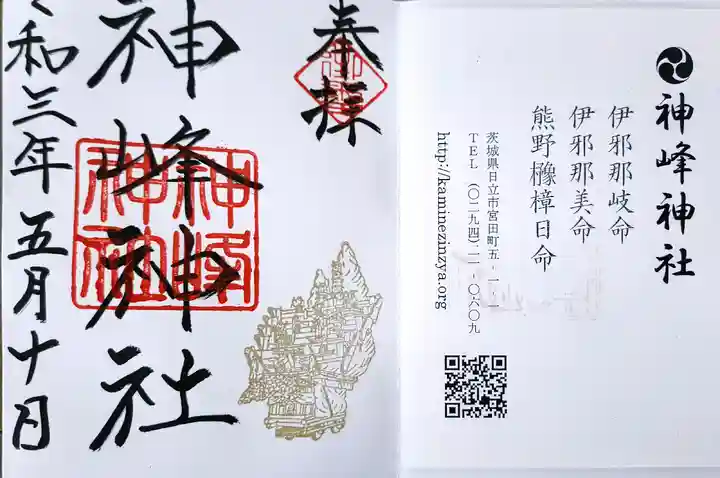 神峰神社
伊邪那岐命
伊邪那美命
熊野櫲樟日命
茨城県日立市宮田町五-一-一
TEL(〇二九四)二一-〇六〇九
http://kaminezinzya.org
奉拝
神峰神社
神峰
神社
令和三年五月十日